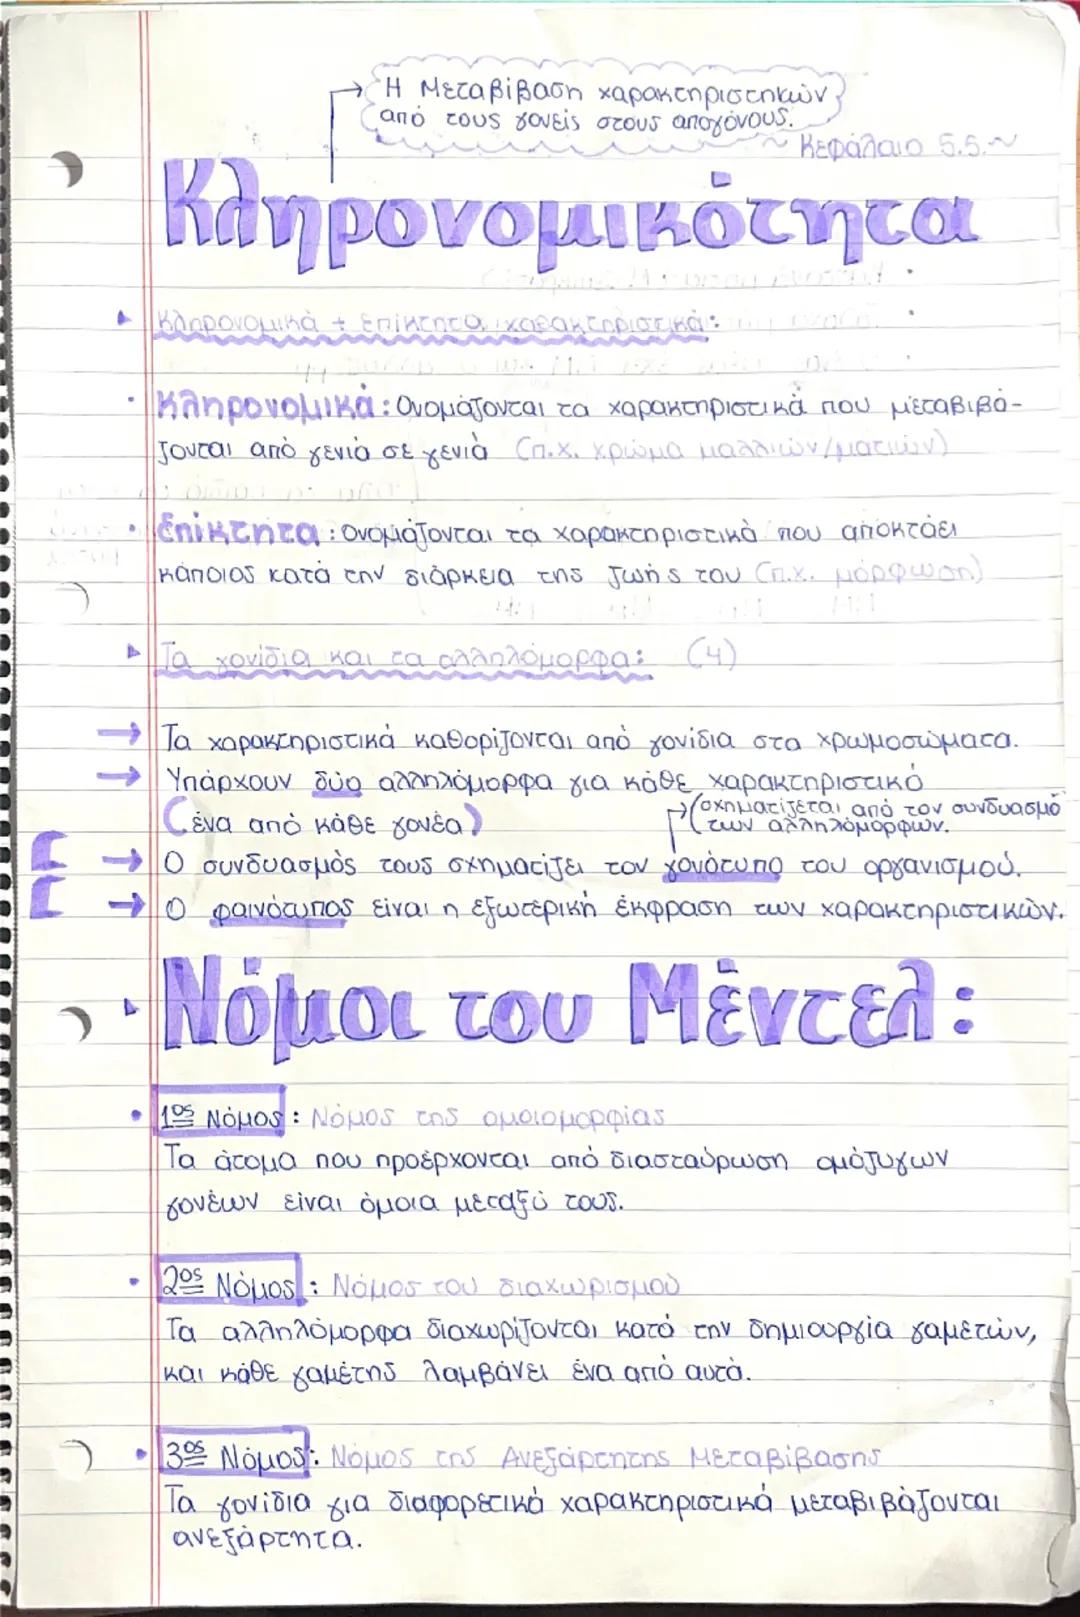 Η Μεταβίβαση χαρακτηριστηκών
από τους γονείς στους απογόνους.
~ Κεφάλαιο 5.5.~
Κληρονομικότητα
Κληρονομικά + Επίκτητα χαρακτηριστικά:
· Κληρονομικά: Ονομάζονται τα χαρακτηριστικά που μεταβιβά-
ζονται από γενιά σε γενιά (π.χ. χρώμα μαλλιών/ματιών)
· Επίκτητα: Ονομάζονται τα χαρακτηριστικά που αποκτάει
κάποιος κατά την διάρκεια της ζωής του (π.χ. μόρφωση)
Τα γονίδια και τα αλληλόμορφα: (4)
→ Τα χαρακτηριστικά καθορίζονται από γονίδια στα χρωμοσώματα.
→ Υπάρχουν δύο αλληλόμορφα για κάθε χαρακτηριστικό
(ένα από κάθε γονέα)
→(σχηματίζεται από τον συνδυασμό
των αλληλόμορφων.
→ Ο συνδυασμός τους σχηματίζει τον γονότυπο του οργανισμού.
→ Ο φαινότυπος είναι η εξωτερική έκφραση των χαρακτηριστικών.
Νόμοι του Μέντελ:
• 1ος Νόμος: Νόμος της ομοιομορφίας
Τα άτομα που προέρχονται από διασταύρωση ομόζυγων
γονέων είναι όμοια μεταξύ τους.
• 2ος Νόμος: Νόμος του διαχωρισμού
Τα αλληλόμορφα διαχωρίζονται κατά την δημιουργία γαμετών,
και κάθε γαμέτης λαμβάνει ένα από αυτά.
• 3ος Νόμος: Νόμος της Ανεξάρτητης Μεταβίβασης
Τα γονίδια για διαφορετικά χαρακτηριστικά μεταβιβάζονται
ανεξάρτητα.